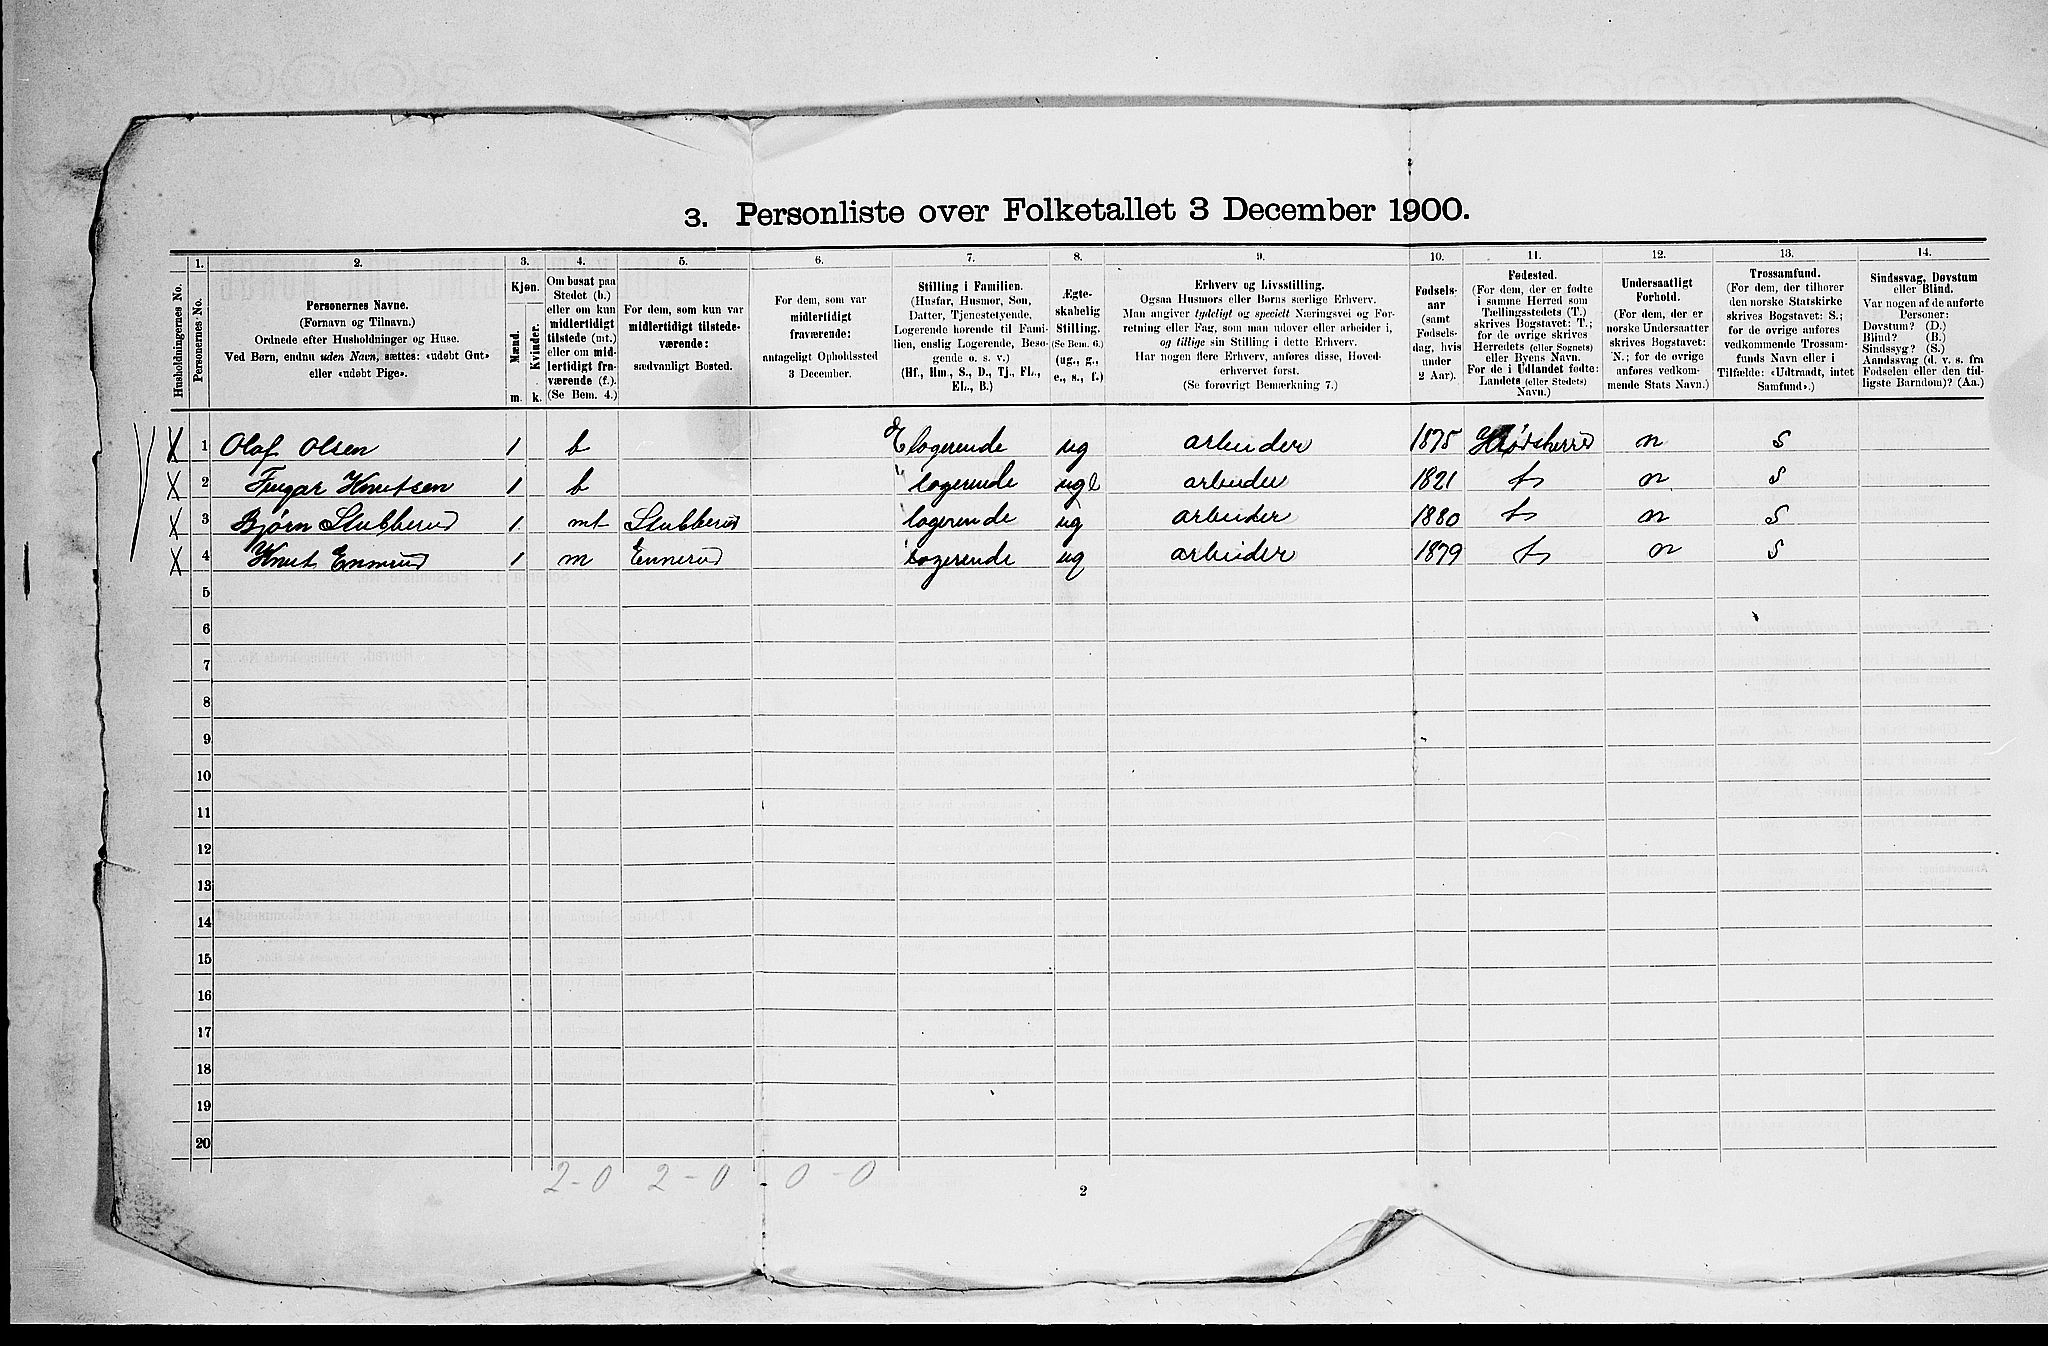 3. Personliste over Folketallet 3 December 1900.
Husholdningernes No.
1.
Personernes No.
2.
Personernes Navne.
(Fornavn og Tilnavn.)
Ordnede efter Husholdninger og Huse.
Ved Børn, endnu uden Navn, sættes: «udøbt Gut»
eller «udøbt Pige».
3.
Kjøn.
Mænd.
Kvinder.
m. k.
4.
Om bosat paa
Stedet (b.)
eller om kun
midlertidigt
tilstede (mt.)
eller om mid-
lertidigt fra-
værende (f.).
(Se Bem. 4.)
5.
For dem, som kun var
midlertidigt tilstede-
værende:
sædvanligt Bosted.
6.
For dem, som var
midlertidigt
fraværende:
antageligt Opholdssted
3 December.
7.
Stilling i Familien.
(Husfar, Husmor, Søn,
Datter, Tjenestetyende,
Logerende hørende til Fami-
lien, enslig Logerende, Besø-
gende o. s. v.)
(Hf., Hm., S., D., Tj., FL.,
EL., B.)
8.
Ægte-
skabelig
Stilling.
(Se Bem. 6.)
(ug., g.,
e., s., f.)
9.
Erhverv og Livsstilling.
Ogsaa Husmors eller Børns særlige Erhverv.
Man angiver tydeligt og specielt Næringsvei og For-
retning eller Fag, som man udøver eller arbeider i,
og tillige sin Stilling i dette Erhverv.
Har nogen flere Erhverv, anføres disse, Hoved-
erhvervet først.
(Se forøvrigt Bemærkning 7.)
10.
Fødsels-
aar
(samt
Fødsels-
dag, hvis
under
2 Aar).
11.
Fødested.
(For dem, der er fødte
i samme Herred som
Tællingsstedets (T.)
skrives Bogstavet: T.;
for de øvrige skrives
Herredets (eller Sognets)
eller Byens Navn.
For de i Udlandet fødte:
Landets (eller Stedets)
Navn.)
12.
Undersaatligt
Forhold.
(For dem, der er
norske Undersaatter
skrives Bogstavet:
N.; for de øvrige
anføres vedkom-
mende Stats Navn.)
13.
Trossamfund.
(For dem, der tilhører
den norske Statskirke
skrives Bogstavet: S.;
for de øvrige anføres
vedkommende Trossam-
funds Navn eller i
Tilfælde: «Udtraadt, intet
Samfund».)
14.
Sindssvag, Døvstum
eller Blind.
Var nogen af de anførte
Personer:
Døvstum? (D.)
Blind? (B.)
Sindssyg? (S.)
Aandssvag (d. v. s. fra
Fødselen eller den tid-
ligste Barndom)? (Aa.)
X 1 Olaf Olsen 1 b E logerende ug arbeider 1875 n S
X 2 Knutsen 1 b " logerende arbeider 1821 t n S
X 3 Bjørn Stubberud 1. mt Stubberud logerende ug arbeider 1880 t n S
X 4 Knut Ennerud 1 m Ennerud logerende ug arbeider 1879 t n S
5
6
7
8
9
10
11
12
13
14
15
16
17
18
19
20
2-0 2-0 0-0
2